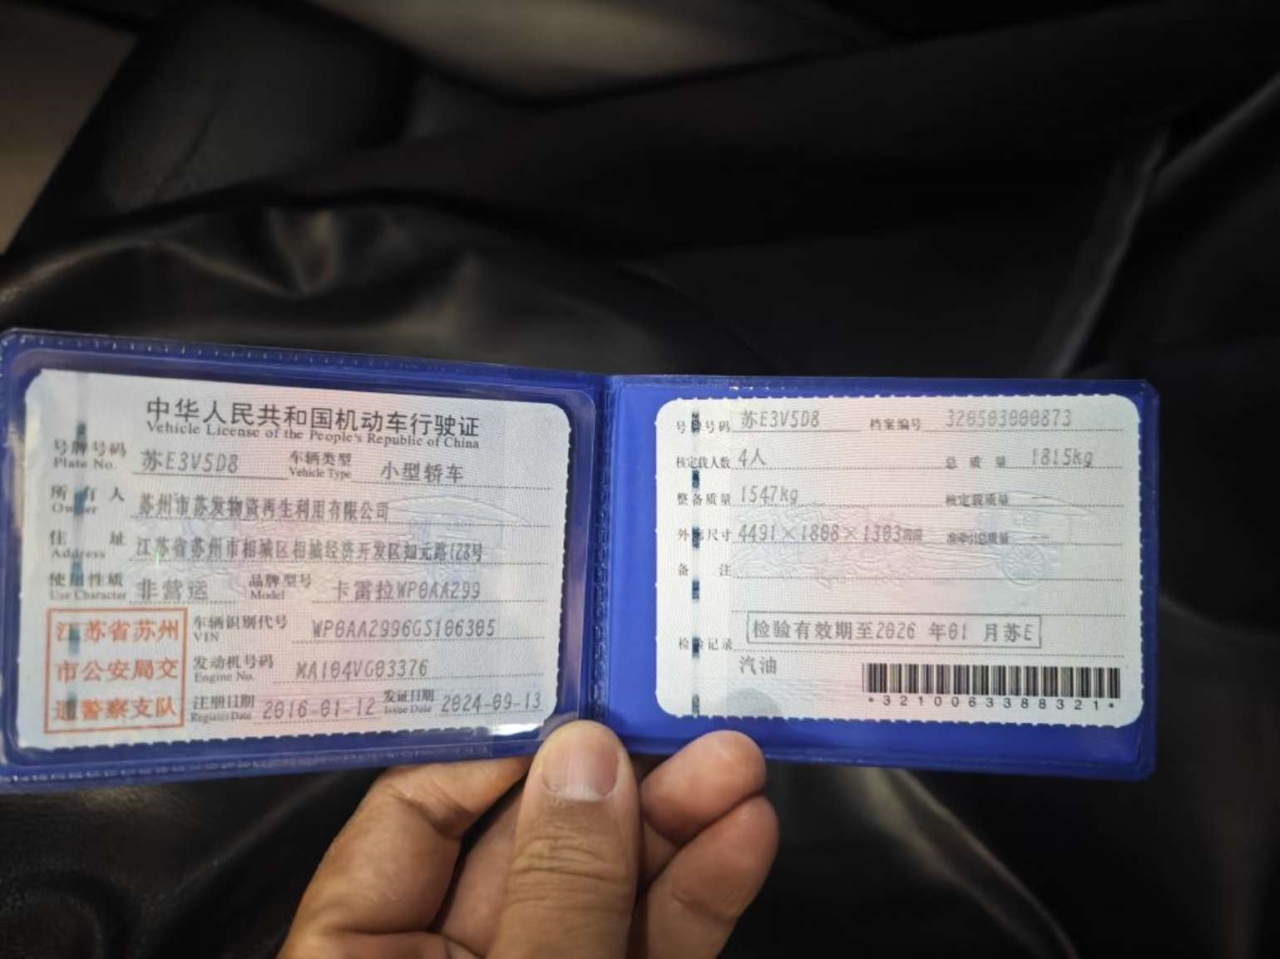 中华人民共和国机动车行驶证
Vehicle License of the People's Republic of China
号牌号码 Plate No. 苏E3V5D8 车辆类型 Vehicle Type 小型轿车
所有人 Owner 苏州市苏发物资再生利用有限公司
住址 Address 江苏省苏州市相城区相城经济开发区如元路128号
使用性质 Use Character 非营运 品牌型号 Model 卡雷拉WP0AA299
江苏省苏州
市公安局交
通警察支队
车辆识别代号 VIN WP0AA2996GS106305
发动机号码 Engine No. MA104VG03376
注册日期 Register Date 2016-01-12 发证日期 Issue Date 2024-09-13
号牌号码 苏E3V5D8 档案编号 320503000873
核定载人数 4人 总质量 1815kg
整备质量 1547kg 核定载质量 --
外廓尺寸 4491×1808×1303mm 准牵引总质量 --
备注
检验记录 检验有效期至2026年01月苏E
汽油
*3210063388321*